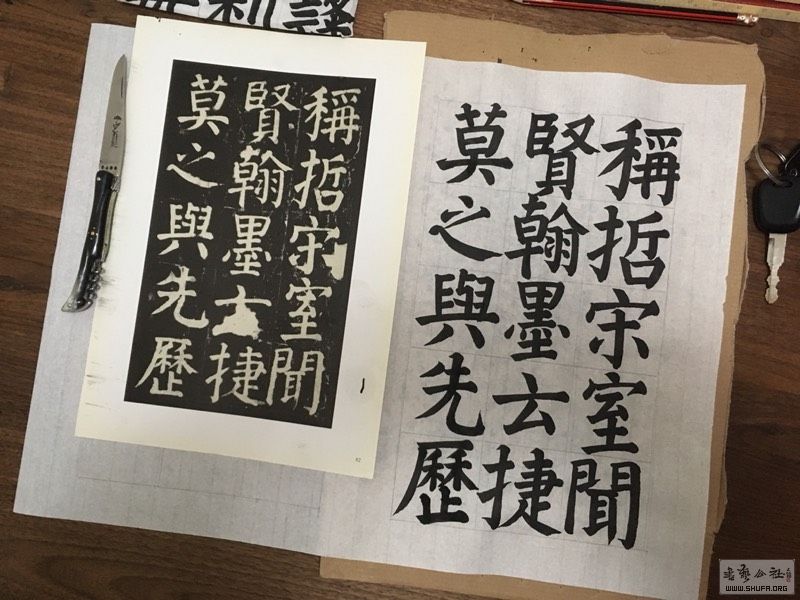 稱哲宋室聞
賢翰墨去捷
莫之與先歷
稱哲宋室聞
賢翰墨去捷
莫之與先歷
82
書藝公社
WWW.SHUFA.ORG